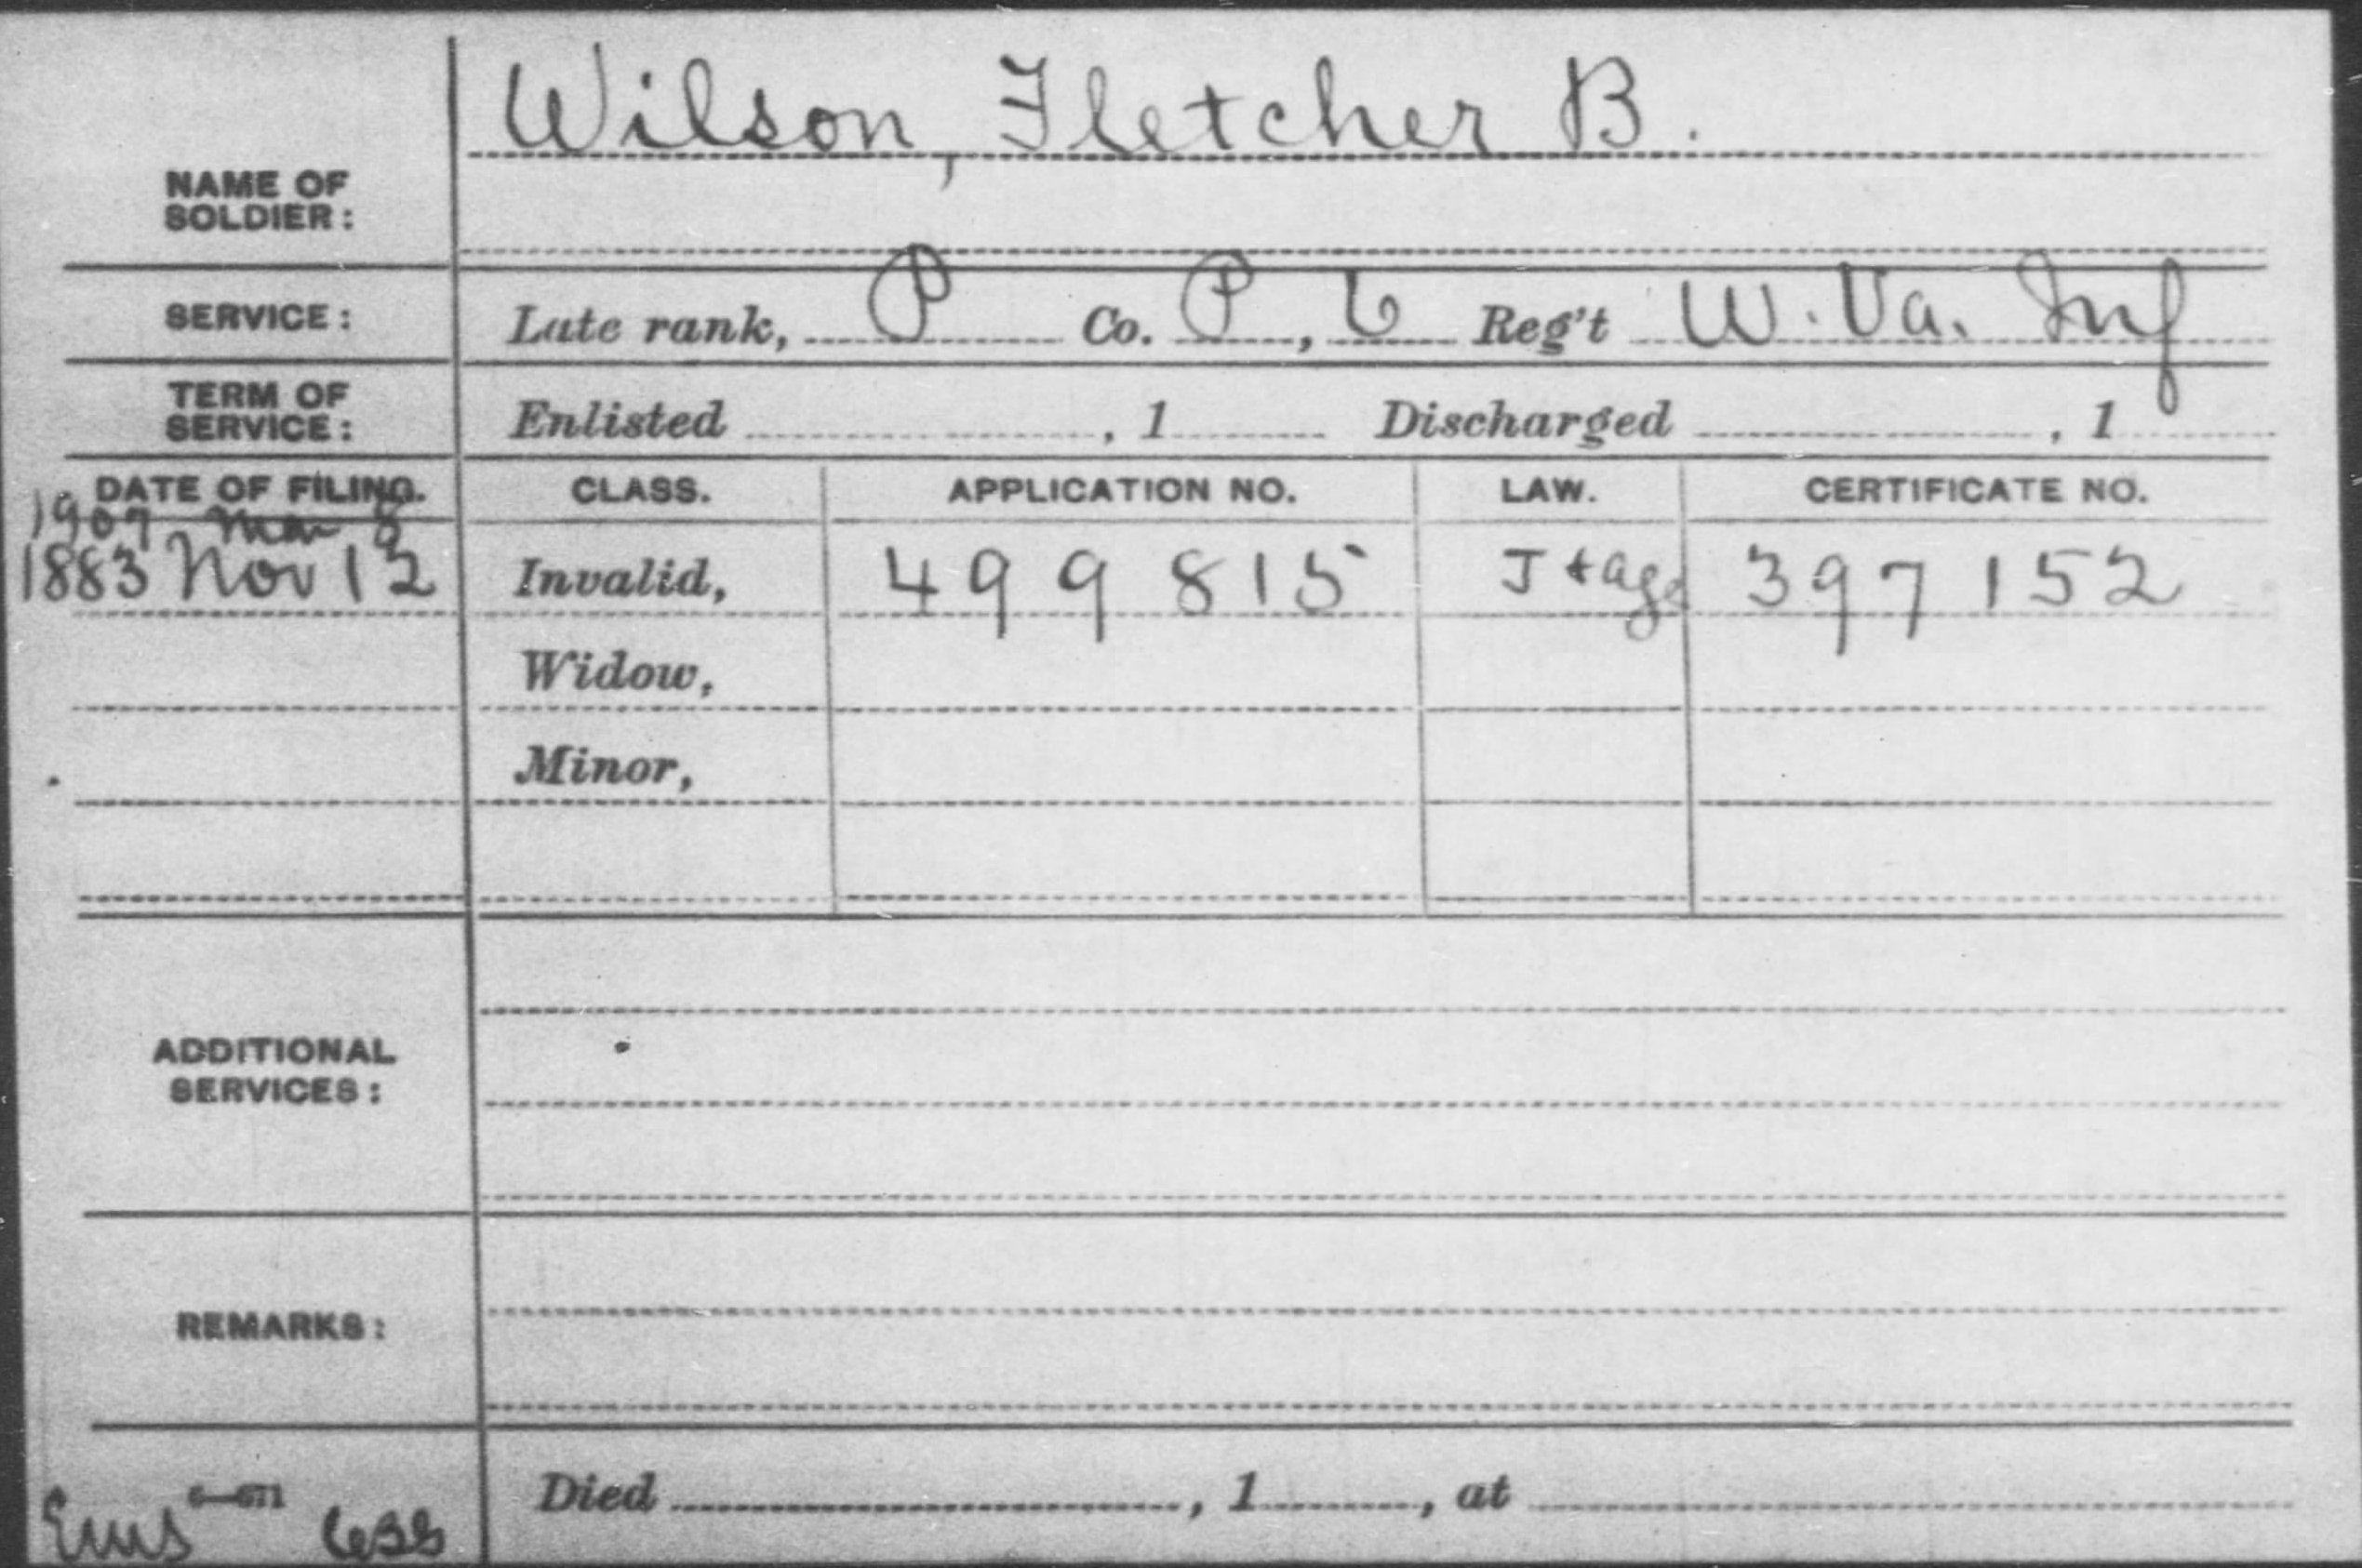 Wilson, Fletcher B.
NAME OF
SOLDIER:
SERVICE: Late rank, P Co. P, 6 Reg't W. Va. Inf
TERM OF
SERVICE: Enlisted , 1 Discharged , 1
DATE OF FILING. CLASS. APPLICATION NO. LAW. CERTIFICATE NO.
1907 Mar 8
1883 Nov 12 Invalid, 499 815 J + age 397 152
Widow,
Minor,
ADDITIONAL
SERVICES:
REMARKS:
6—671 Died , 1 , at